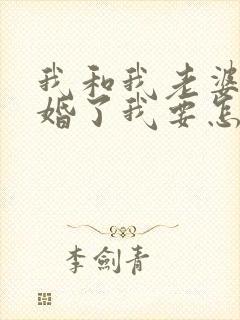 我和我老婆
婚了我要怎
李劍青